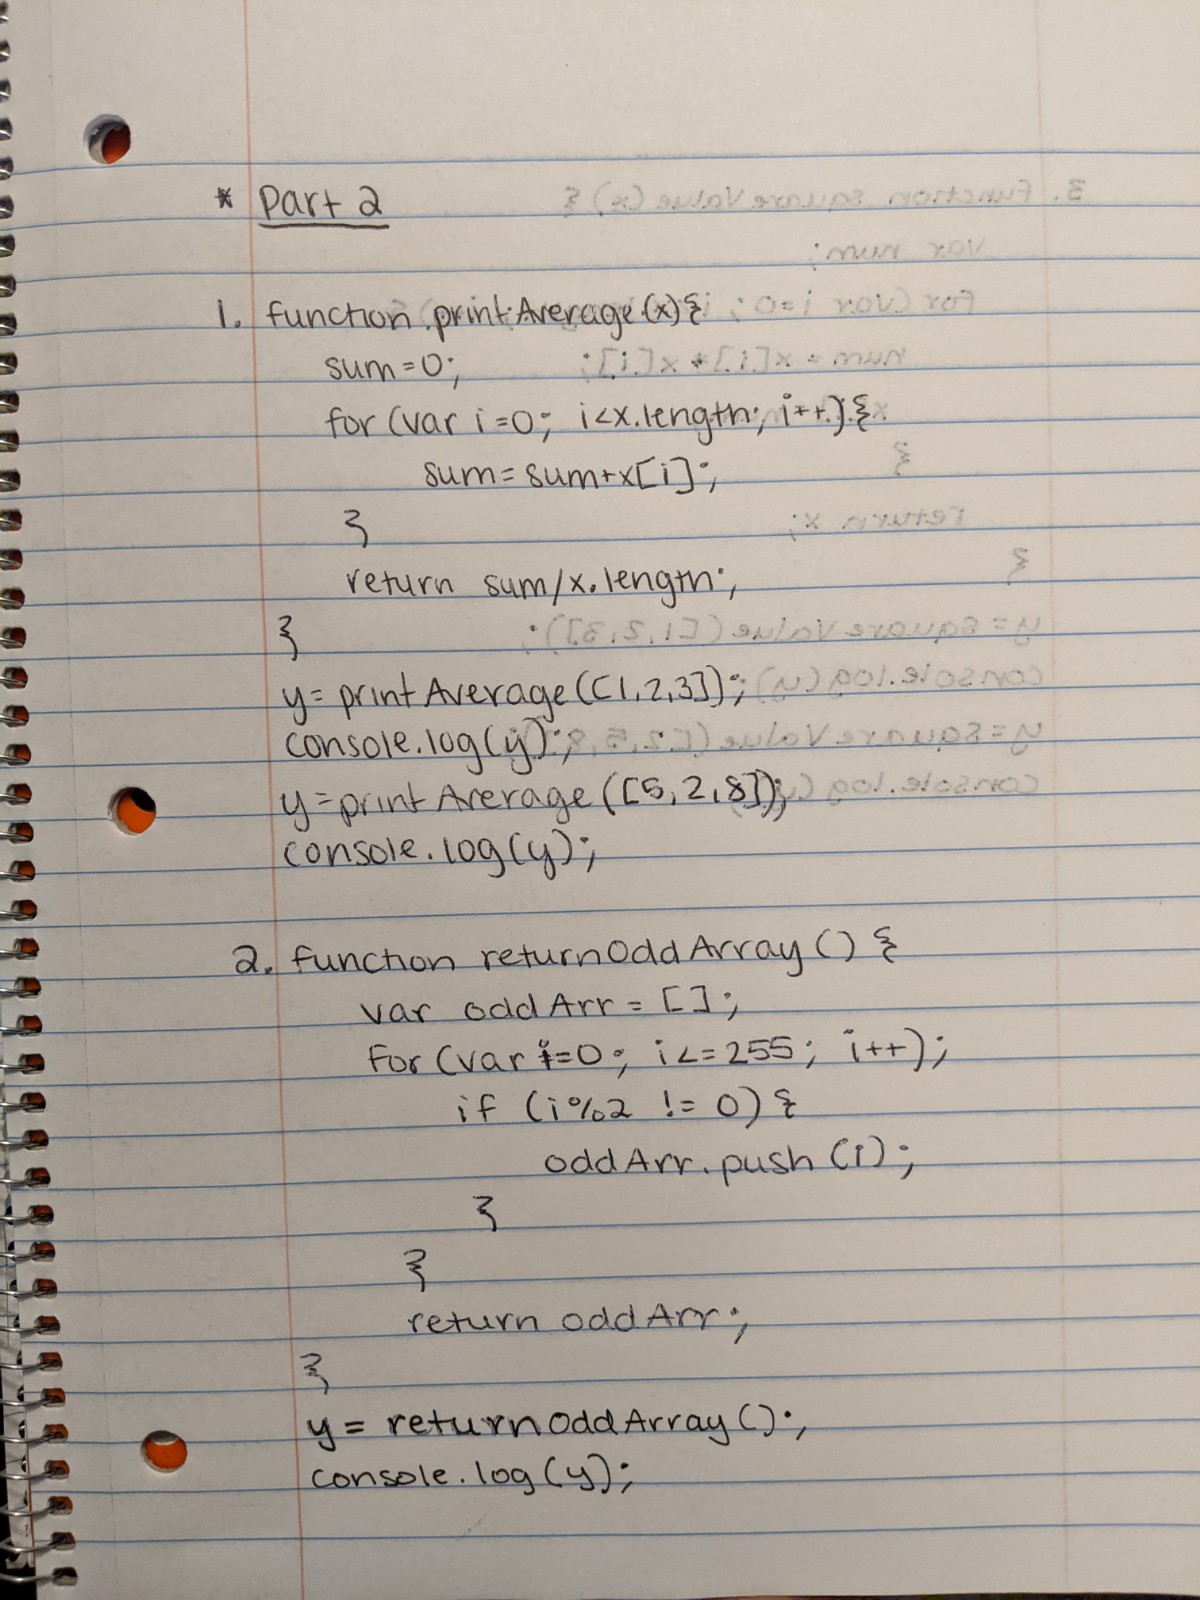 * Part 2
1. function printAverage(x){
sum=0;
for (var i=0; i<x.length; i++){
sum=sum+x[i];
}
return sum/x.length;
}
y=printAverage([1,2,3]);
console.log(y);
y=printAverage([5,2,8]);
console.log(y);
2. function returnOddArray() {
var oddArr = [];
for (var i=0; i<=255; i++);
if (i%2 != 0) {
oddArr.push(i);
}
}
return oddArr;
}
y = returnOddArray();
console.log(y);